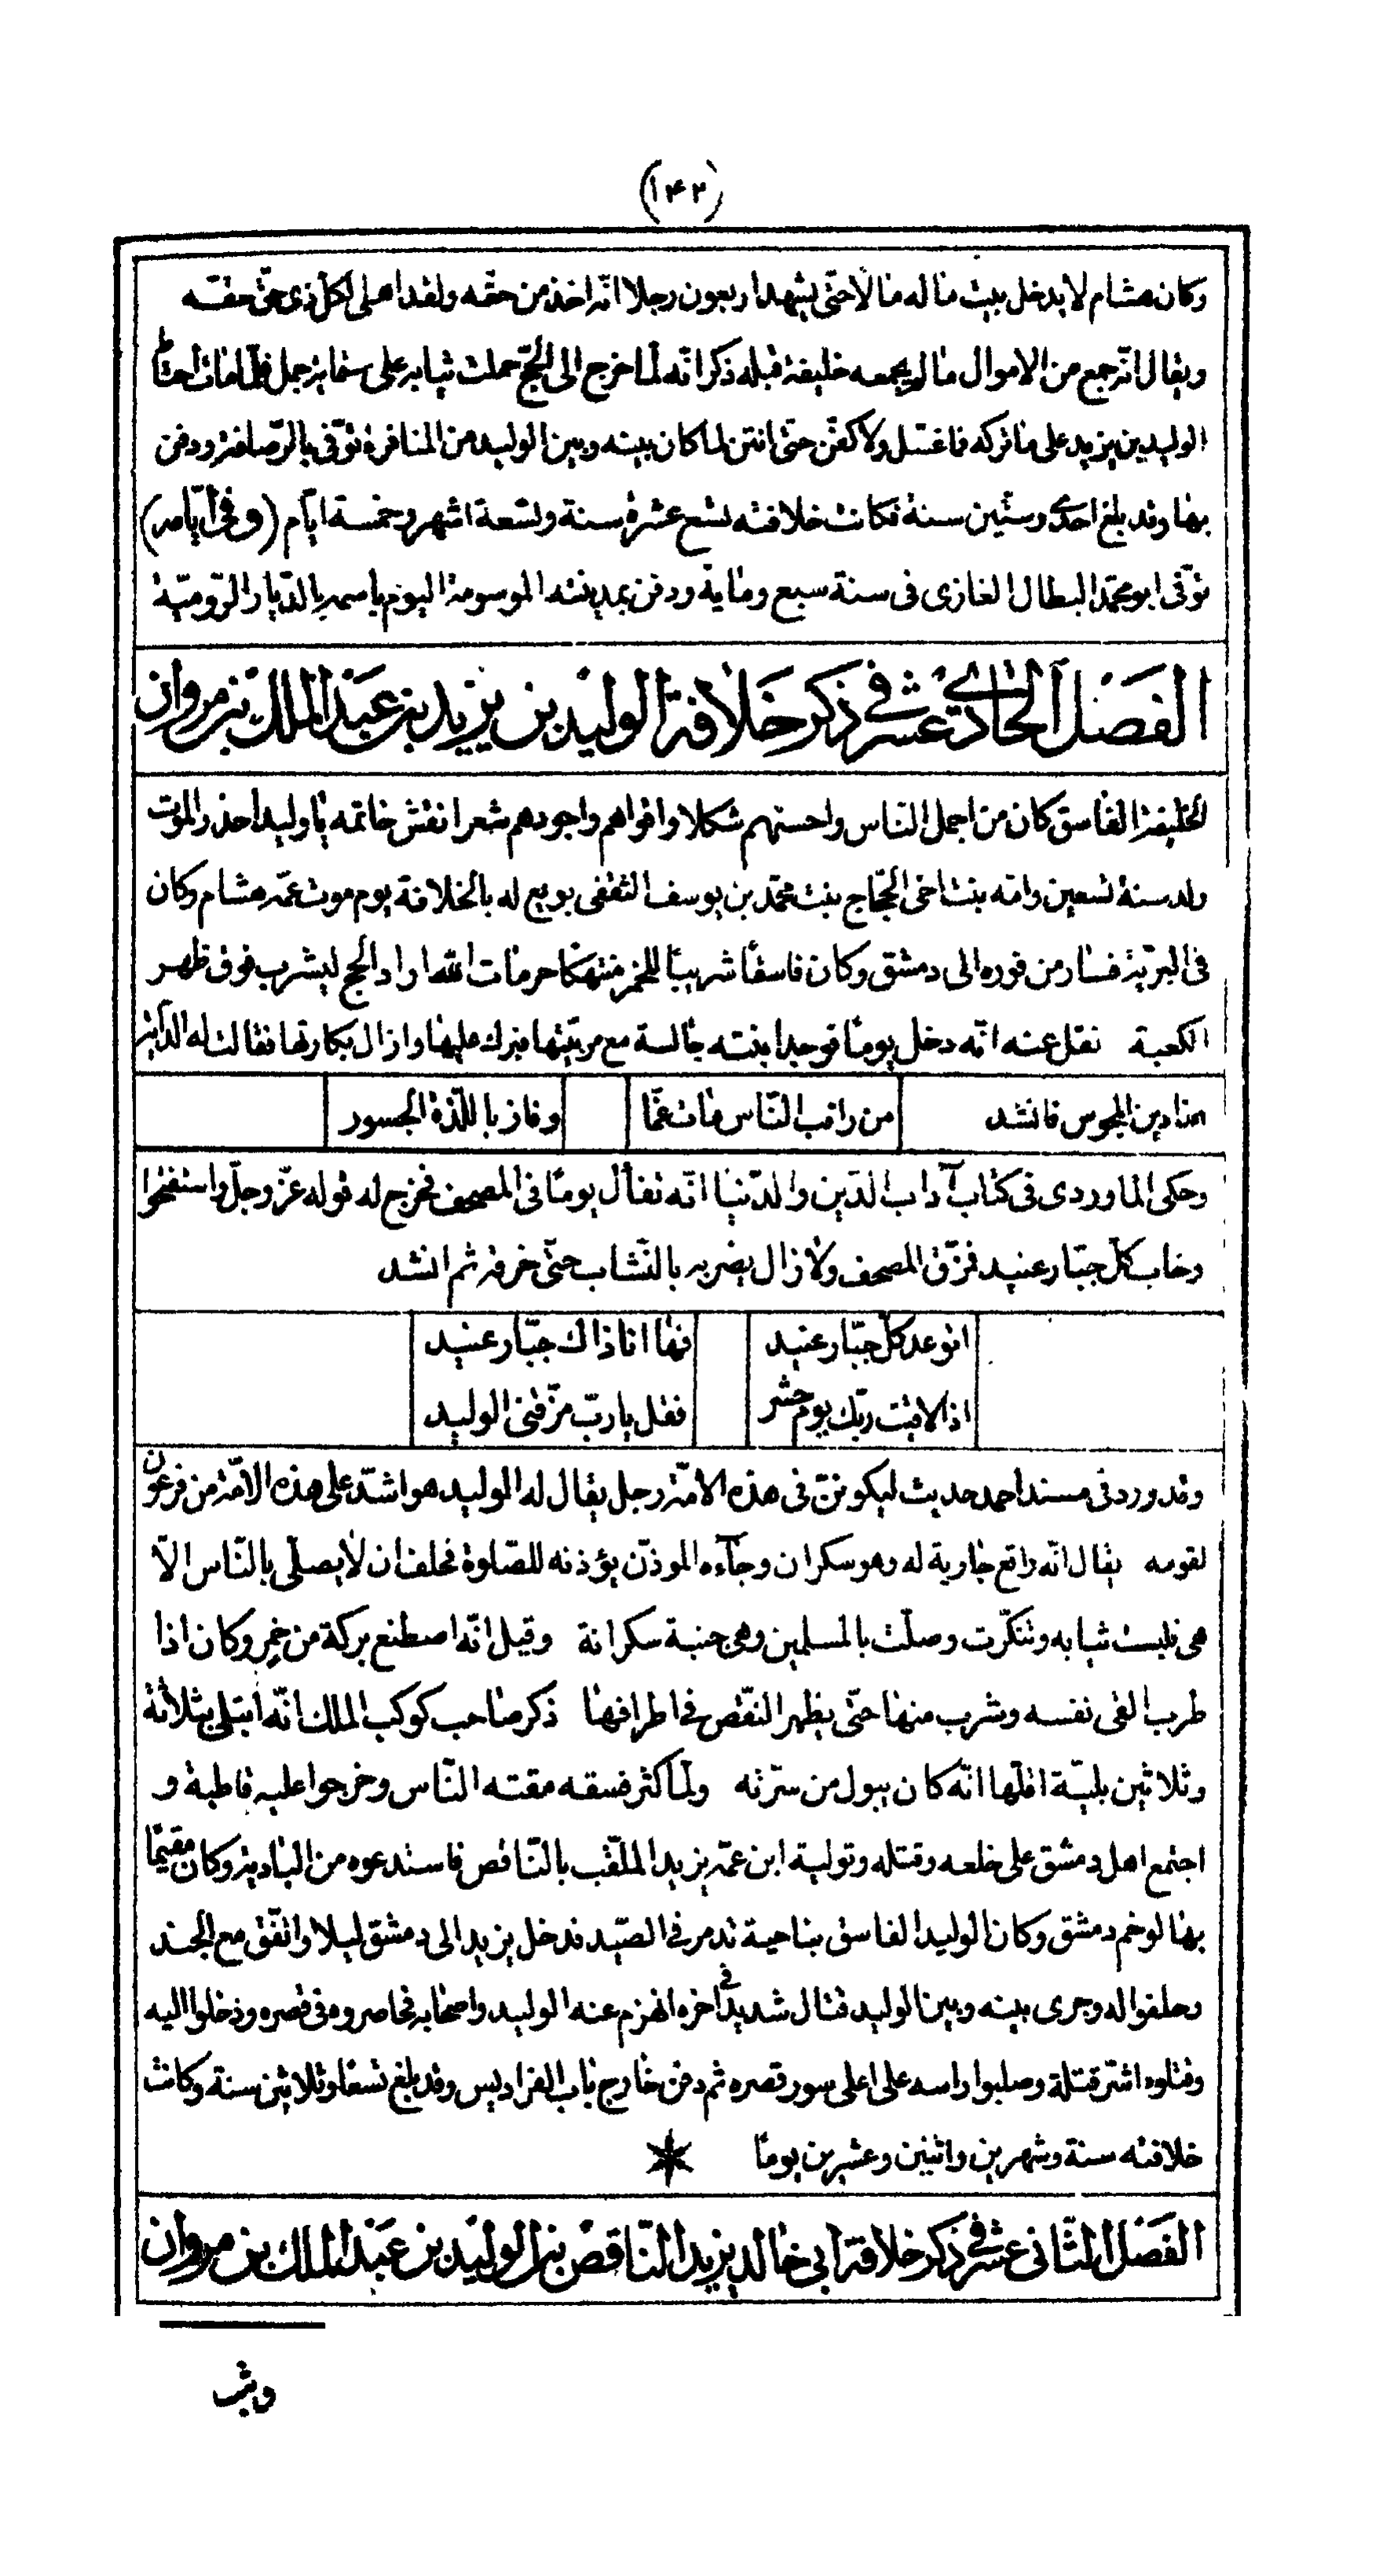 (۱۴۲)
وكان هشام لا يدخل بيت ماله مالا حتى يشهد اربعون رجلا انه اخذ من حقه ولقد اعطى لكل ذى حق حقه
ويقال انه جمع من الاموال ما لم يجمعه خليفة قبله ذكر انه لما خرج الى الحج حملت ثيابه على ستماية جمل فلما مات احتاط
الوليد بن يزيد على ما تركه فما غسل ولا كفن حتى انتن لما كان بينه وبين الوليد من المنافرة توفى بالرصافة ودفن
بها وقد بلغ احدى وستين سنة فكانت خلافته تسع عشرة سنة وتسعة اشهر وخمسة ايام (وفى ايامه)
توفى ابو محمد البطال الغازى فى سنة سبع وماية ودفن بمدينته الموسومة اليوم باسمه بالديار الرومية
الفصل الحادي عشر في ذكر خلافة الوليد بن يزيد بن عبد الملك بن مروان
الخليفة الفاسق كان من اجمل الناس واحسنهم شكلا واقواهم واجودهم شعرا نقش خاتمه يا وليد احذر الموت
ولد سنة تسعين وامه بنت اخى الحجاج بنت محمد بن يوسف الثقفى بويع له بالخلافة يوم موت عمه هشام وكان
فى البرية فسار من فوره الى دمشق وكان فاسقا شريبا للخمر منتهكا حرمات الله اراد الحج ليشرب فوق ظهر
الكعبة نقل عنه انه دخل يوما فوجد ابنته جالسة مع مربيتها فبرك عليها وازال بكارتها فقالت له الداية
هذا دين المجوس فانشد من راقب الناس مات غما وفاز باللذة الجسور
وحكى الماوردى فى كتاب آداب الدين والدنيا انه تفأل يوما فى المصحف فخرج له قوله عز وجل واستفتحوا
وخاب كل جبار عنيد فمزق المصحف ولا زال يضربه بالنشاب حتى خرقه ثم انشد
اتوعد كل جبار عنيد فها انا ذاك جبار عنيد
اذا لاقيت ربك يوم حشر فقل يا رب مزقنى الوليد
وقد ورد فى مسند احمد حديث ليكونن فى هذه الامة رجل يقال له الوليد هو اشد على هذه الامة من فرعون
لقومه يقال انه واقع جارية له وهو سكران وجآءه الموذن يؤذنه للصلوة فحلف ان لا يصلى بالناس الا
هى فلبست ثيابه وتنكرت وصلت بالمسلمين وهى جنبة سكرانة وقيل انه اصطنع بركة من خمر وكان اذا
طرب القى نفسه وشرب منها حتى يظهر النقص فى اطرافها ذكر صاحب كوكب الملك انه ابتلى بثلاثة
وثلاثين بلية اقلها انه كان يبول من سرته ولما كثر فسقه مقته الناس وخرجوا عليه قاطبة و
اجتمع اهل دمشق على خلعه وقتله وتولية ابن عمه يزيد الملقب بالناقص فاستدعوه من البادية وكان مقيما
بها لوخم دمشق وكان الوليد الفاسق بناحية تدمر فى الصيد فدخل يزيد الى دمشق ليلا واتفق مع الجند
وحلفوا له وجرى بينه وبين الوليد قتال شديد فى اخره انهزم عنه الوليد واصحابه فحاصروه فى قصره ودخلوا اليه
وقتلوه اشر قتلة وصلبوا راسه على اعلى سور قصره ثم دفن خارج باب الفراديس وقد بلغ تسعا وثلاثين سنة وكانت
خلافته سنة وشهرين واثنين وعشرين يوما
الفصل الثانى عشر فى ذكر خلافة ابى خالد يزيد الناقص بن الوليد بن عبد الملك بن مروان